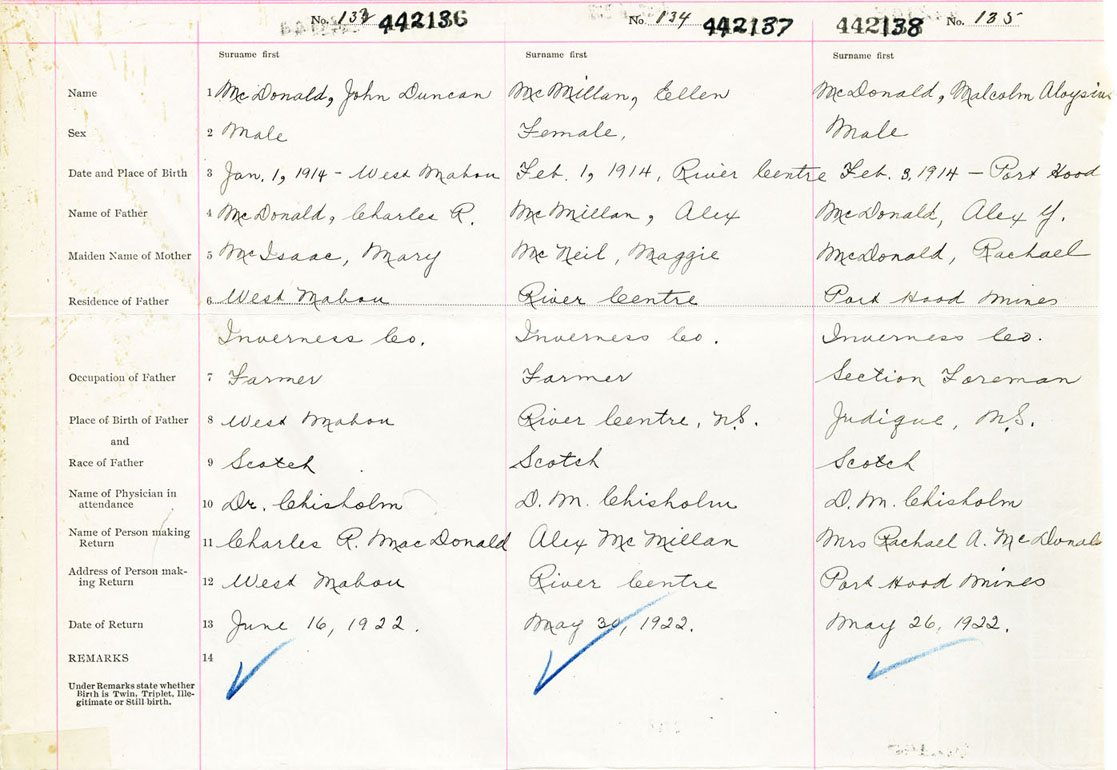 No. 133 442136 No. 134 442137 442138 No. 135
Surname first Surname first Surname first
Name 1 McDonald, John Duncan McMillan, Ellen McDonald, Malcolm Aloysius
Sex 2 Male Female, Male
Date and Place of Birth 3 Jan. 1, 1914 - West Mabou Feb. 1, 1914, River Centre Feb. 3, 1914 - Port Hood
Name of Father 4 McDonald, Charles R. McMillan, Alex McDonald, Alex Y.
Maiden Name of Mother 5 McIsaac, Mary McNeil, Maggie McDonald, Rachael
Residence of Father 6 West Mabou River Centre Port Hood Mines
Inverness Co. Inverness Co. Inverness Co.
Occupation of Father 7 Farmer Farmer Section Foreman
Place of Birth of Father 8 West Mabou River Centre, N.S. Judique, N.S.
and
Race of Father 9 Scotch Scotch Scotch
Name of Physician in
attendance 10 Dr. Chisholm D. M. Chisholm D. M. Chisholm
Name of Person making
Return 11 Charles R. MacDonald Alex McMillan Mrs Rachael A. McDonald
Address of Person mak-
ing Return 12 West Mabou River Centre Port Hood Mines
Date of Return 13 June 16, 1922. May 30, 1922. May 26, 1922.
REMARKS 14
Under Remarks state whether
Birth is Twin, Triplet, Ille-
gitimate or Still birth.